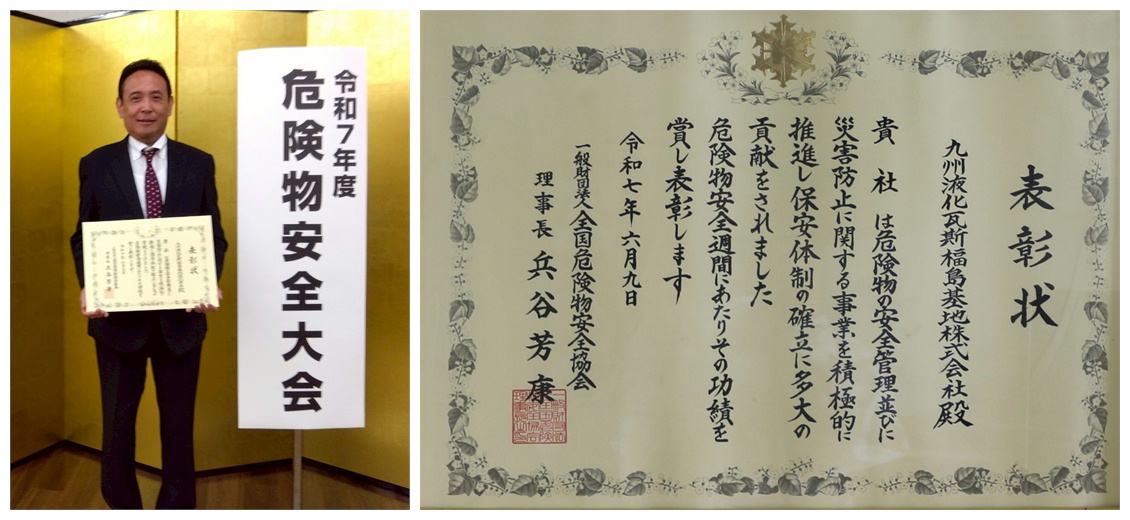 令和7年度
危険物安全大会
表彰状
九州液化瓦斯福島基地株式会社殿
貴社は危険物の安全管理並びに
災害防止に関する事業を積極的に
推進し保安体制の確立に多大の
貢献をされました
危険物安全週間にあたりその功績を
賞し表彰します
令和七年六月九日
一般財団法人全国危険物安全協会
理事長兵谷芳康